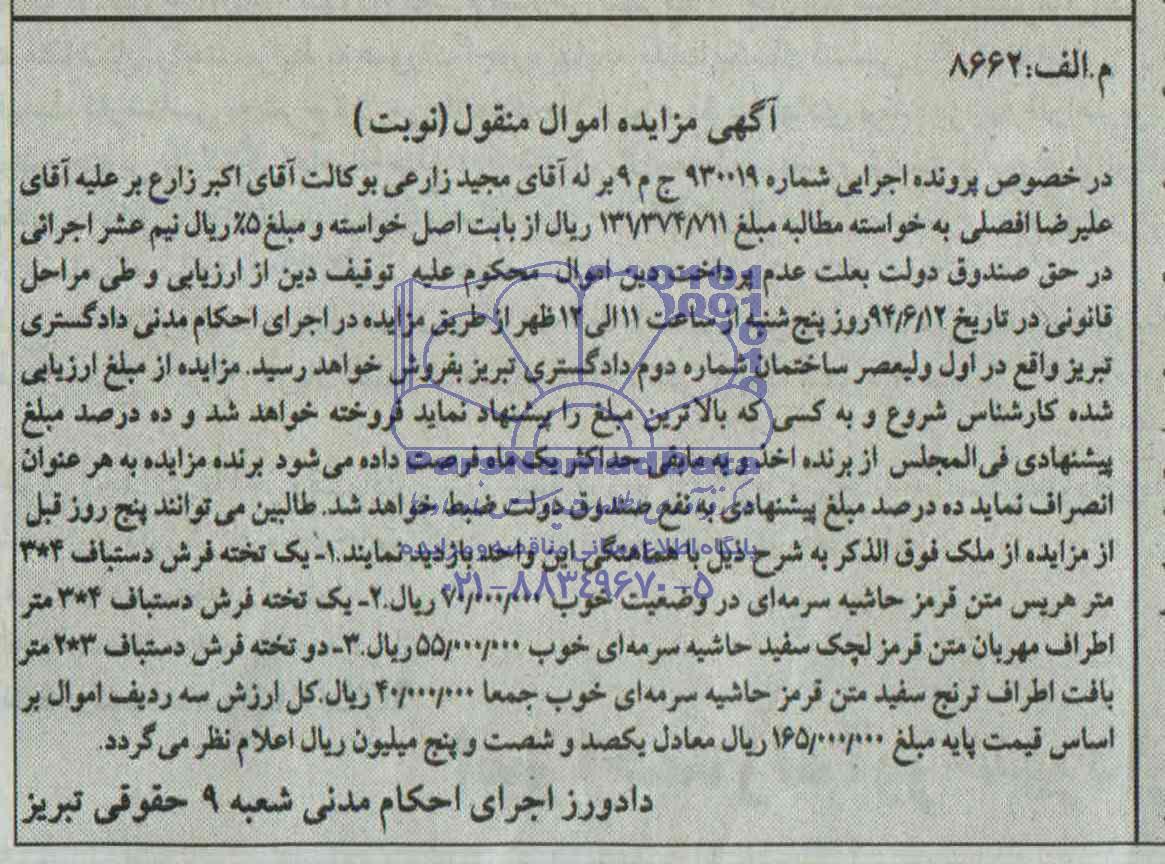 م.الف:۸۶۶۲
آگهی مزایده اموال منقول(نوبت )
در خصوص پرونده اجرایی شماره ۹۳۰۰۱۹ ج م ۹بر له آقای مجید زارعی بوکالت آقای اکبر زارع بر علیه آقای
علیرضا افصلی به خواسته مطالبه مبلغ ۱۳۱/۳۷۴/۷۱۱ ریال از بابت اصل خواسته و مبلغ ۵٪ریال نیم عشر اجرائی
در حق صندوق دولت بعلت عدم پرداخت دین اموال محکوم علیه توقیف دین از ارزیابی و طی مراحل
قانونی در تاریخ ۹۴/۶/۱۲روز پنج شنبه از ساعت ۱۱الی۱۲ظهر از طریق مزایده در اجرای احکام مدنی دادگستری
تبریز واقع در اول ولیعصر ساختمان شماره دوم دادگستری تبریز بفروش خواهد رسید. مزایده از مبلغ ارزیابی
شده کارشناس شروع و به کسی که بالاترین مبلغ را پیشنهاد نماید فروخته خواهد شد و ده درصد مبلغ
پیشنهادی فی‌المجلس از برنده اخذ و به مابقی حداکثر یک ماه فرصت داده می‌شود برنده مزایده به هر عنوان
انصراف نماید ده درصد مبلغ پیشنهادی به نفع صندوق دولت ضبط خواهد شد. طالبین می‌توانند پنج روز قبل
از مزایده از ملک فوق الذکر به شرح ذیل با هماهنگی این واحد بازدید نمایند.۱- یک تخته فرش دستباف ۴*۳
متر هریس متن قرمز حاشیه سرمه‌ای در وضعیت خوب ۷۰/۰۰۰/۰۰۰ ریال.۲- یک تخته فرش دستباف ۴*۳ متر
اطراف مهربان متن قرمز لچک سفید حاشیه سرمه‌ای خوب ۵۵/۰۰۰/۰۰۰ ریال.۳- دو تخته فرش دستباف ۳*۲متر
بافت اطراف ترنج سفید متن قرمز حاشیه سرمه‌ای خوب جمعا ۴۰/۰۰۰/۰۰۰ ریال.کل ارزش سه ردیف اموال بر
اساس قیمت پایه مبلغ ۱۶۵/۰۰۰/۰۰۰ ریال معادل یکصد و شصت و پنج میلیون ریال اعلام نظر می‌گردد.
دادورز اجرای احکام مدنی شعبه ۹ حقوقی تبریز
پایگاه اطلاع رسانی مناقصه و مزایده
۰۲۱-۸۸۳۴۹۶۷۰-۵